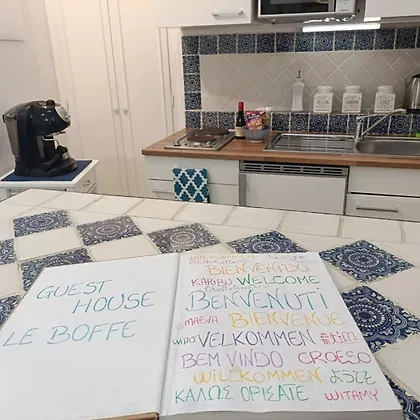 GUEST
HOUSE
LE BOFFE
BIENVENIDO
KARIBU WELCOME
BENVENUTI
MAEVA BIENVENUE
VELKOMMEN
BEM-VINDO CROESO
WILLKOMMEN ようこそ
ΚΑΛΩΣ ΟΡΙΣΑΤΕ WITAMY